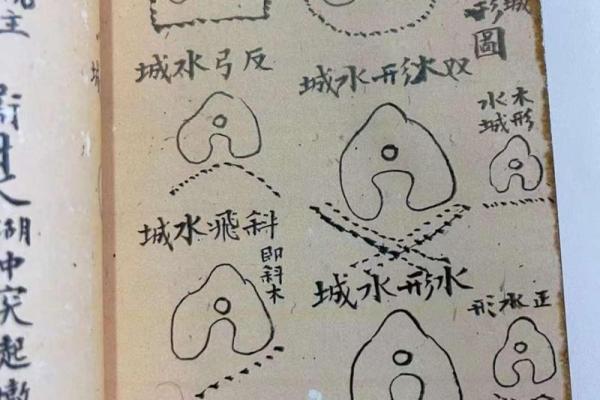 城
形
圖
木形
水城
正水形
双水形水城
水形水城
反弓水城
斜飛水城
即斜木
湖中突起嫩